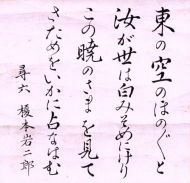 東の空のほのぐと
汝が世は白みそめにけり
この暁のさまを見て
さだめをいかに占なはむ
尋六 榎本岩二郎